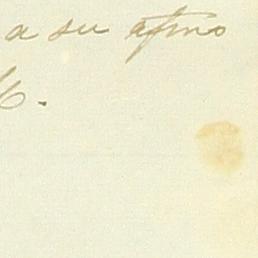 a su afmo